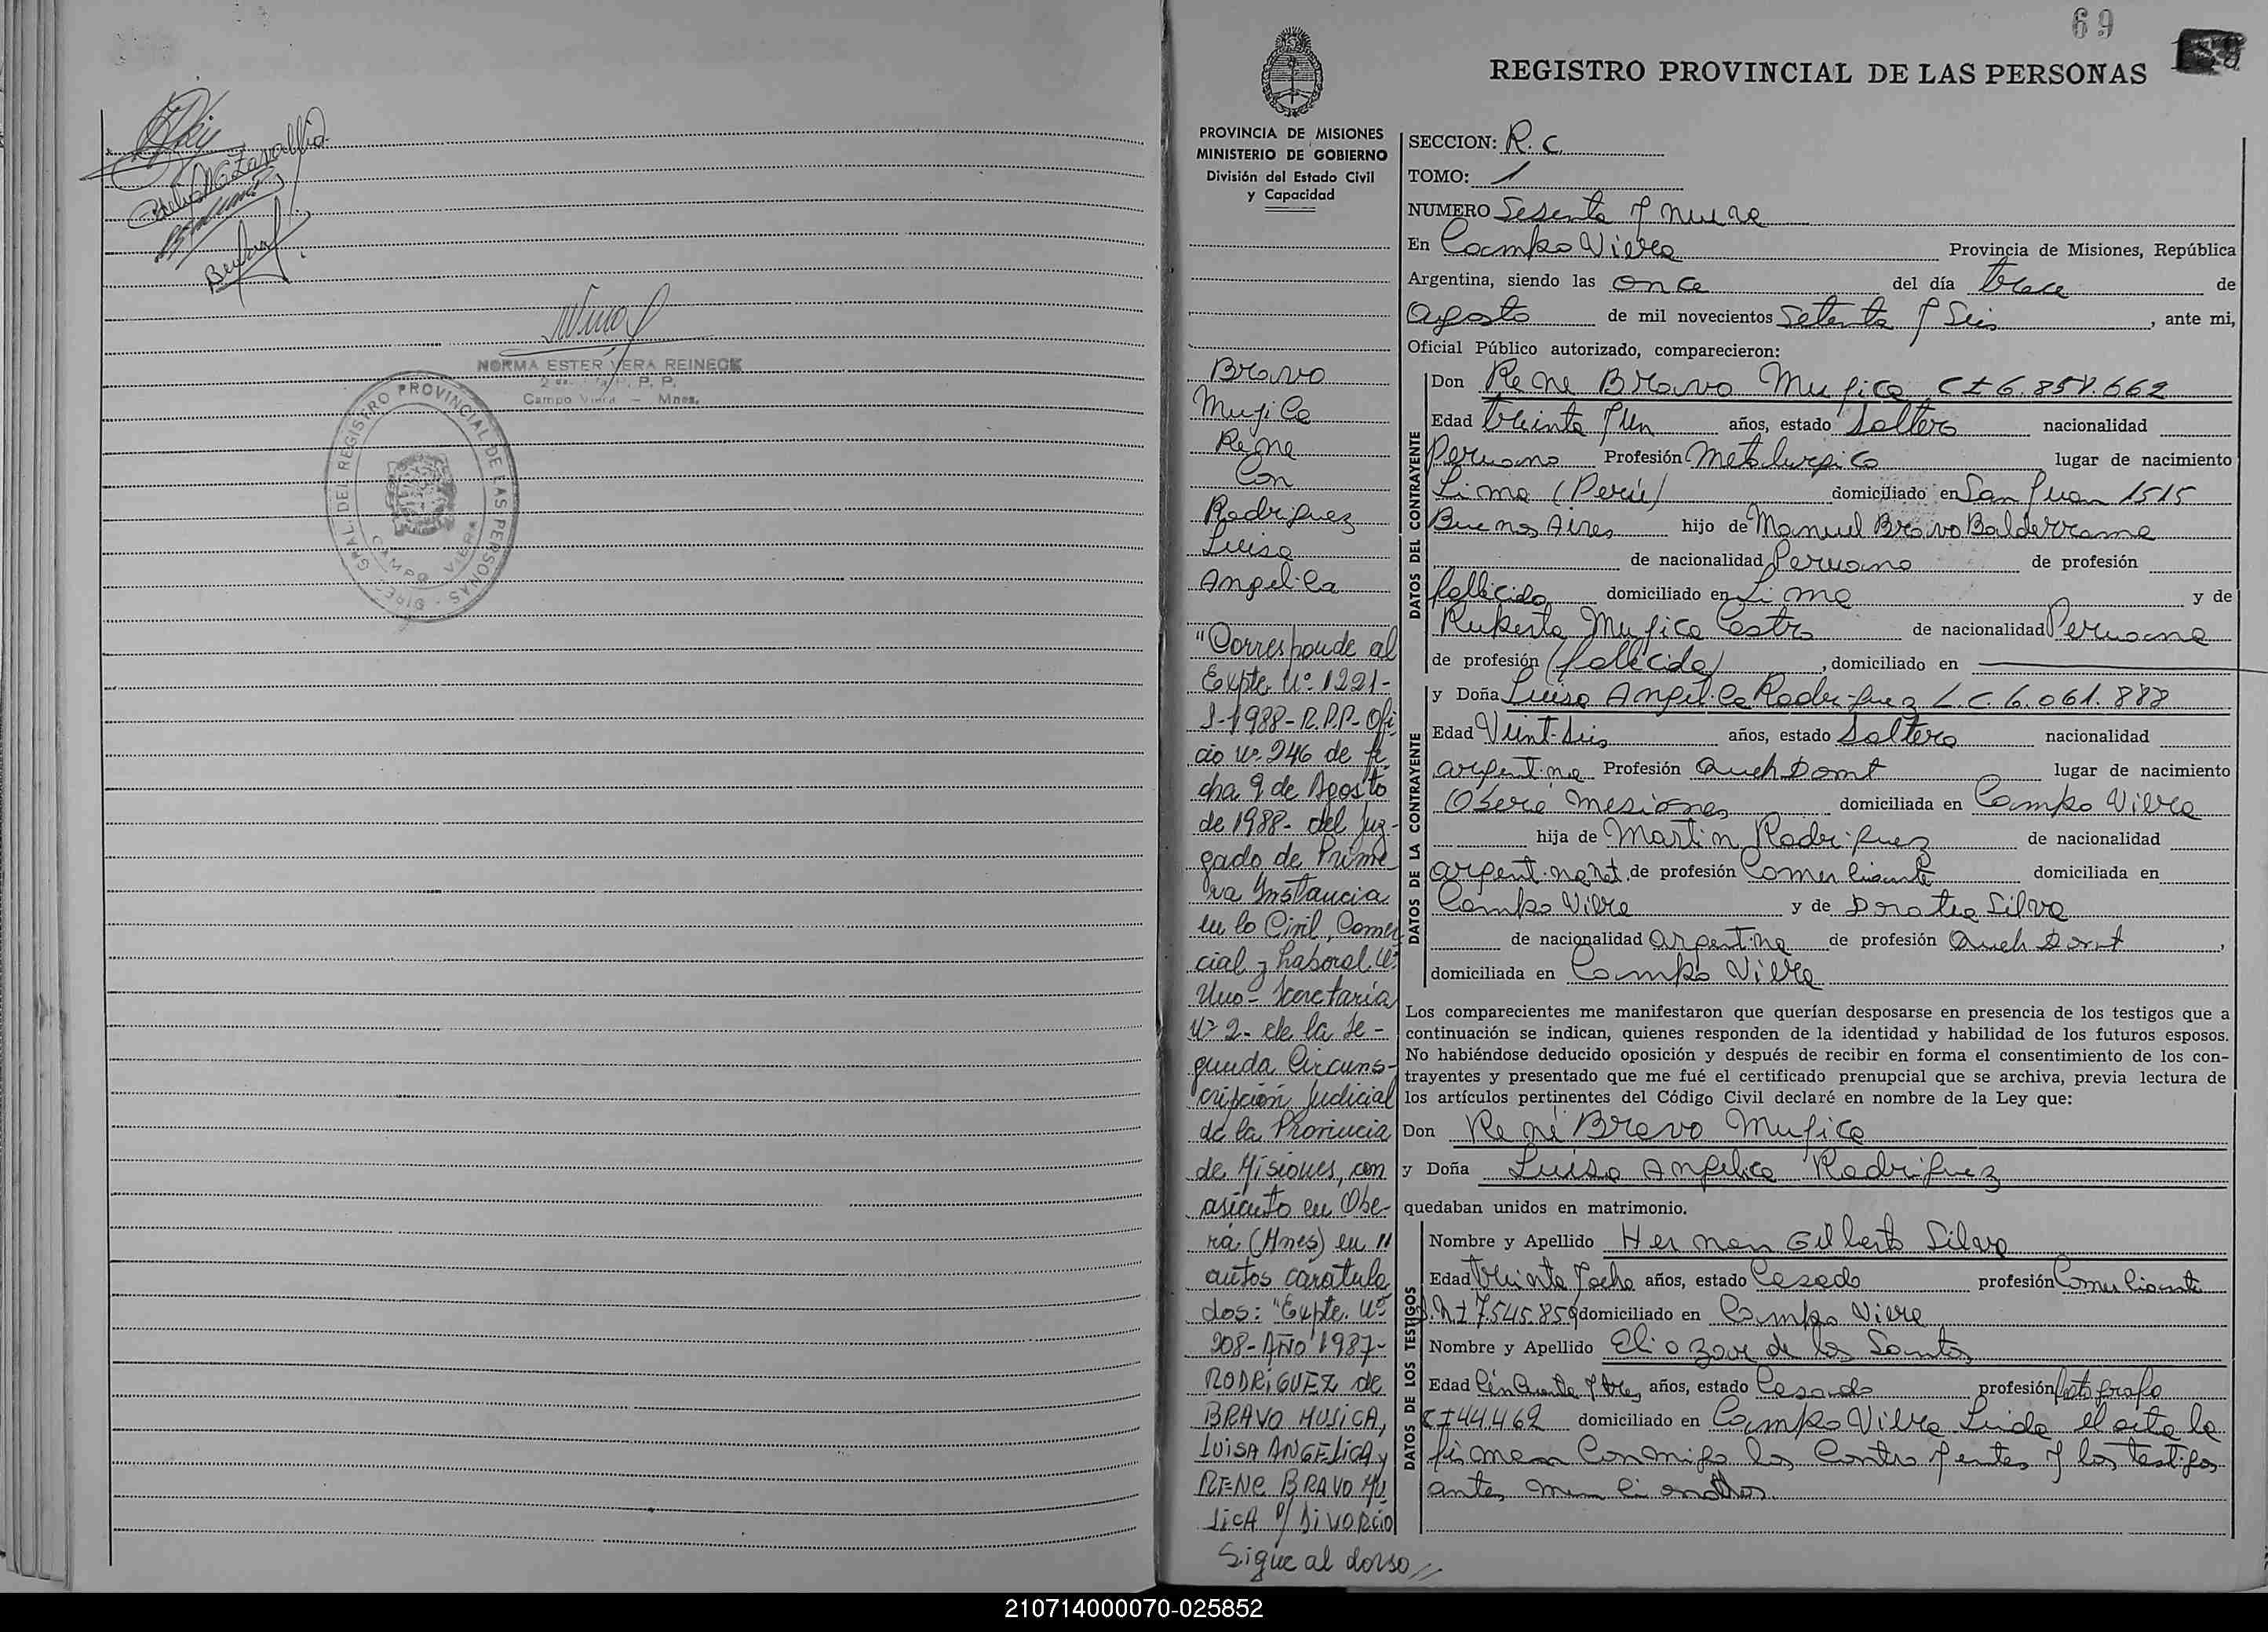 NORMA ESTER VERA REINECK
R. P. P.
Campo Viera — Mnes.
DIREC. GRAL. DEL REGISTRO PROVINCIAL DE LAS PERSONAS
CAMPO VIERA
69
REGISTRO PROVINCIAL DE LAS PERSONAS
PROVINCIA DE MISIONES
MINISTERIO DE GOBIERNO
División del Estado Civil
y Capacidad
Bravo
Mujica
Rene
Con
Rodriguez
Luisa
Angelica
"Corresponde al
Expte. Nº 1221-
J-1988-R.P.P- Ofi
cio Nº 246 de fe
cha 9 de Agosto
de 1988- del Juz-
gado de Prime
ra Instancia
en lo Civil, Comer
cial y Laboral Nº
Uno- Secretaria
Nº 2- de la Se-
gunda Circuns-
cripción Judicial
de la Provincia
de Misiones, con
asiento en Obe-
rá (Mnes) en //
autos caratula
dos: "Expte. Nº
208-AÑO 1987-
RODRIGUEZ de
BRAVO MUJICA,
LUISA ANGELICA y
RENE BRAVO MU
JICA S/ DIVORCIO
Sigue al dorso //
SECCION: R. C.
TOMO: 1
NUMERO Sesenta y nueve
En Campo Viera Provincia de Misiones, República
Argentina, siendo las once del día trece de
Agosto de mil novecientos Setenta y Seis, ante mi,
Oficial Público autorizado, comparecieron:
DATOS DEL CONTRAYENTE
Don Rene Bravo Mujica CI 6.858.662
Edad treinta y un años, estado Soltero nacionalidad
Peruano Profesión Metalurgico lugar de nacimiento
Lima (Perú) domiciliado en San Juan 1515
Buenos Aires hijo de Manuel Bravo Balderrama
de nacionalidad Peruano de profesión
fallecido domiciliado en Lima y de
Ruperta Mujica Castro de nacionalidad Peruana
de profesión (fallecida), domiciliado en
DATOS DE LA CONTRAYENTE
y Doña Luisa Angelica Rodriguez L.C. 6.061.888
Edad Veintiseis años, estado Soltera nacionalidad
argentina Profesión Queh Domt lugar de nacimiento
Oberá Misiones domiciliada en Campo Viera
hija de Martin Rodriguez de nacionalidad
argentino Nat. de profesión Comerciante domiciliada en
Campo Viera y de Dorotea Silva
de nacionalidad Argentina de profesión Queh Domt,
domiciliada en Campo Viera
Los comparecientes me manifestaron que querían desposarse en presencia de los testigos que a
continuación se indican, quienes responden de la identidad y habilidad de los futuros esposos.
No habiéndose deducido oposición y después de recibir en forma el consentimiento de los con-
trayentes y presentado que me fué el certificado prenupcial que se archiva, previa lectura de
los artículos pertinentes del Código Civil declaré en nombre de la Ley que:
Don René Bravo Mujica
y Doña Luisa Angelica Rodriguez
quedaban unidos en matrimonio.
DATOS DE LOS TESTIGOS
Nombre y Apellido Hernan Gilberto Silva
Edad treinta y ocho años, estado Casado profesión Comerciante
D.N.I 7.545.859 domiciliado en Campo Viera
Nombre y Apellido Eliozar de los Santos
Edad Cincuenta y tres años, estado Casado profesión fotografo
CI 44.462 domiciliado en Campo Viera Leida el acta la
firman conmigo los contrayentes y los testigos
antes mencionados
210714000070-025852